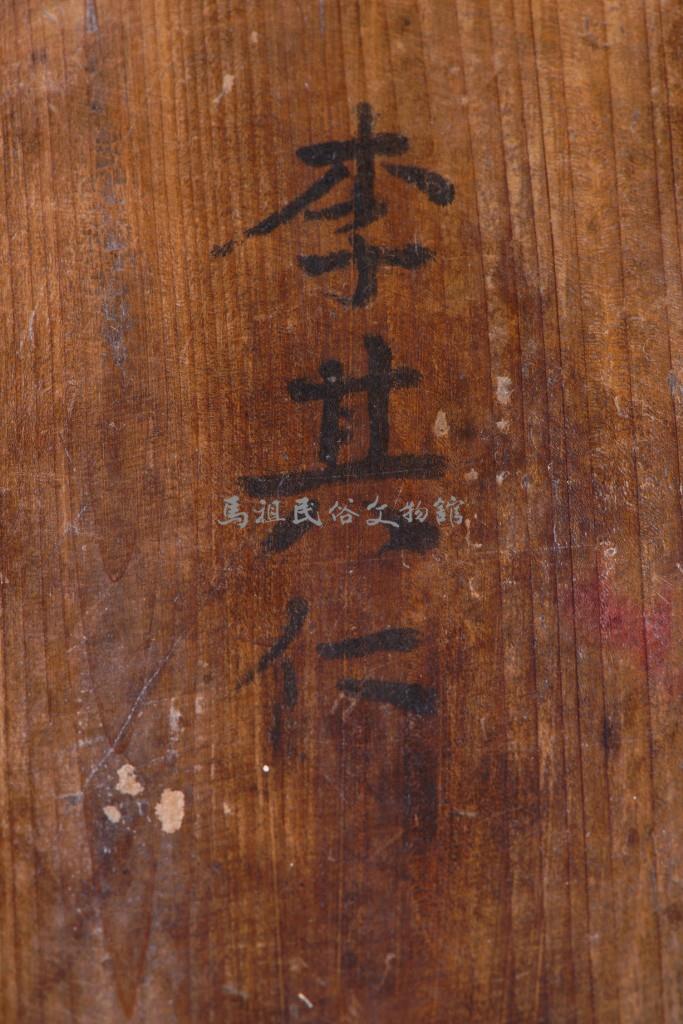 李其仁
馬祖民俗文物館